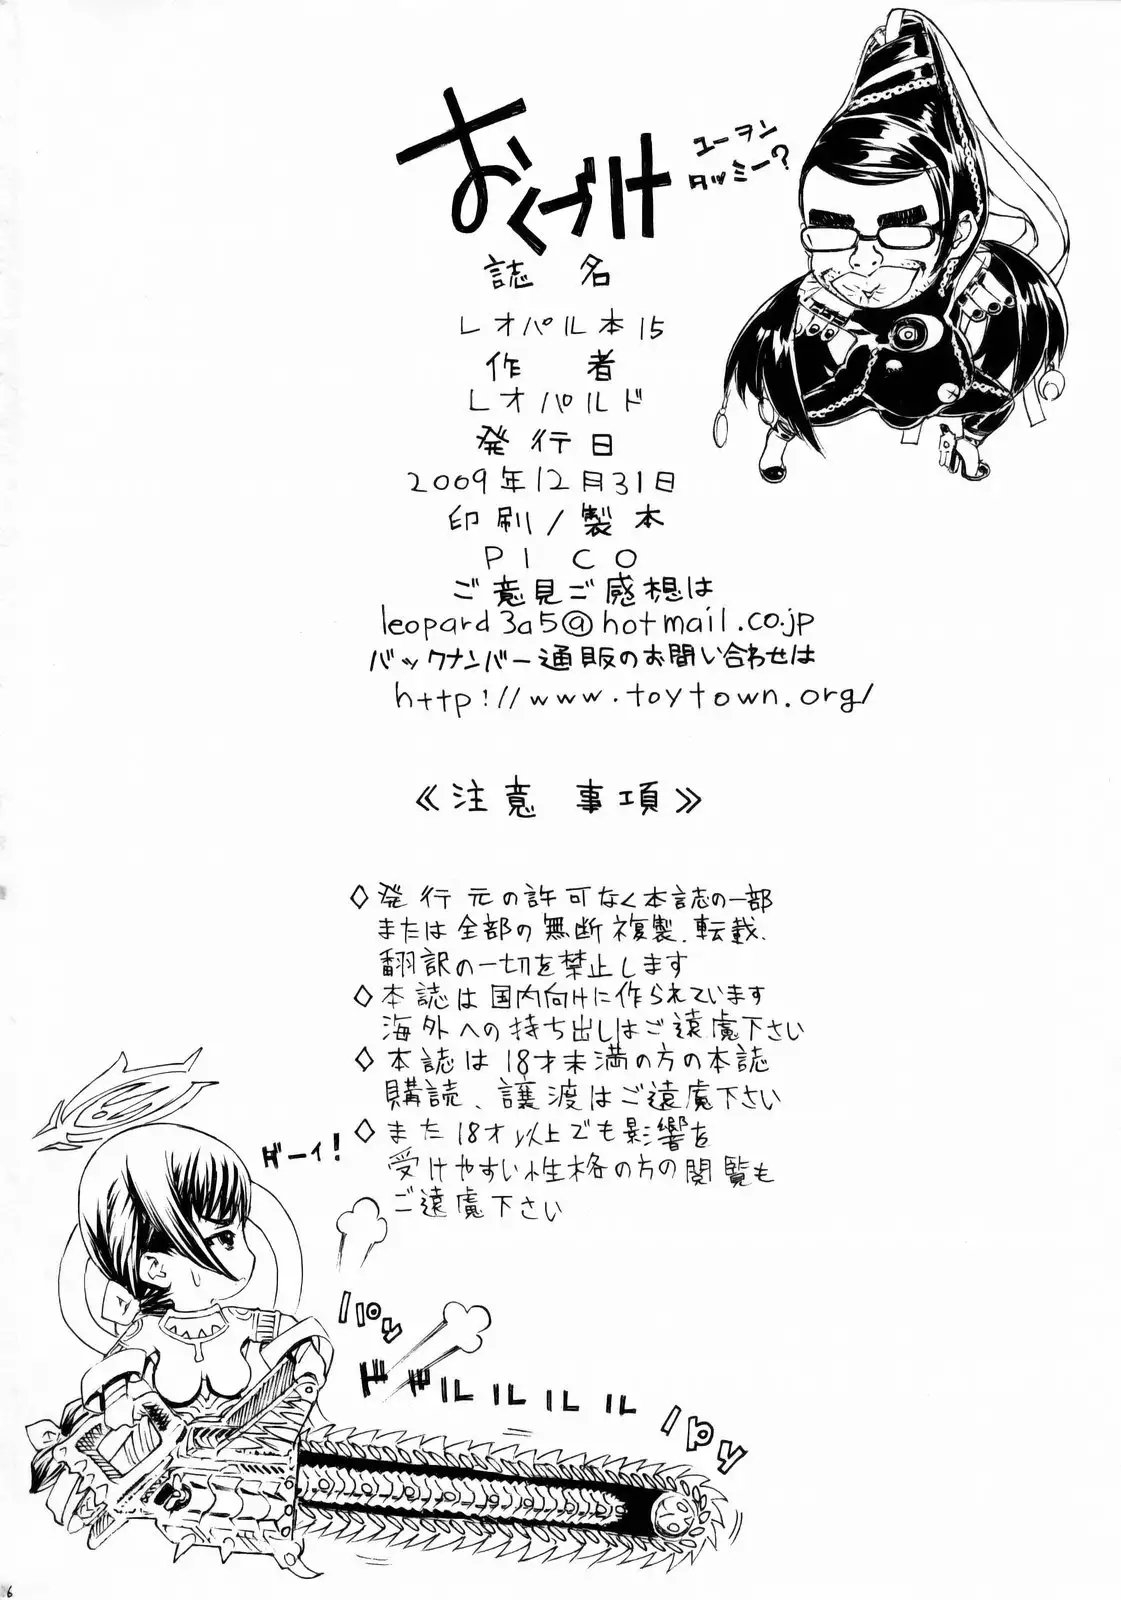 おくづけ
ユーヲン
タッミー?
誌名
レオパル本15
作者
レオパルド
発行日
2009年12月31日
印刷/製本
PICO
ご意見ご感想は
leopard3a5@hotmail.co.jp
バックナンバー通販のお問い合わせは
http://www.toytown.org/
≪注意事項≫
◇発行元の許可なく本誌の一部
または全部の無断複製、転載、
翻訳の一切を禁止します
◇本誌は国内向けに作られています
海外への持ち出しはご遠慮下さい
◇本誌は18才未満の方の本誌
購読、譲渡はご遠慮下さい
◇また18才以上でも影響を
受けやすい性格の方の閲覧も
ご遠慮下さい
ダーイ!
ドドルルルルル
6